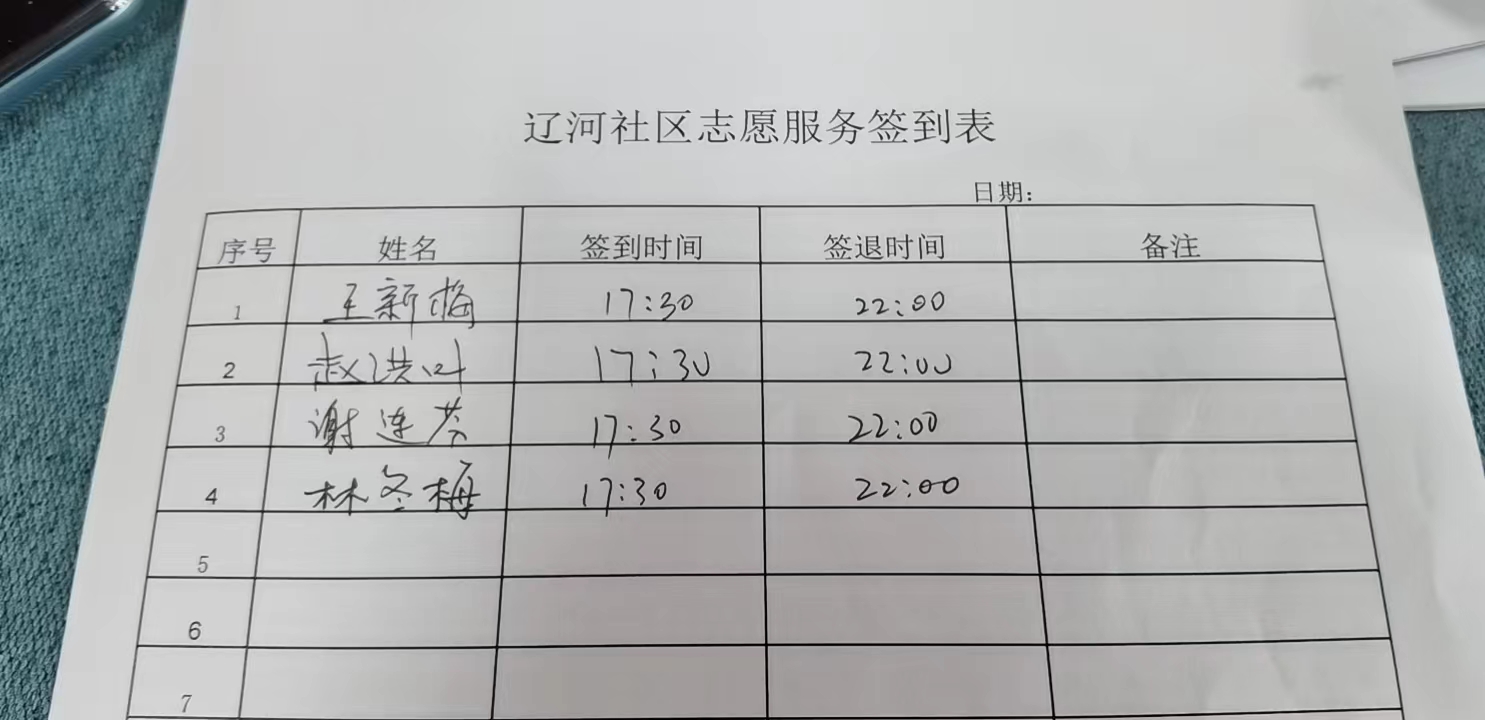 辽河社区志愿服务签到表
日期:
序号 姓名 签到时间 签退时间 备注
1 王新梅 17:30 22:00
2 赵洪叶 17:30 22:00
3 谢连芬 17:30 22:00
4 林冬梅 17:30 22:00
5
6
7